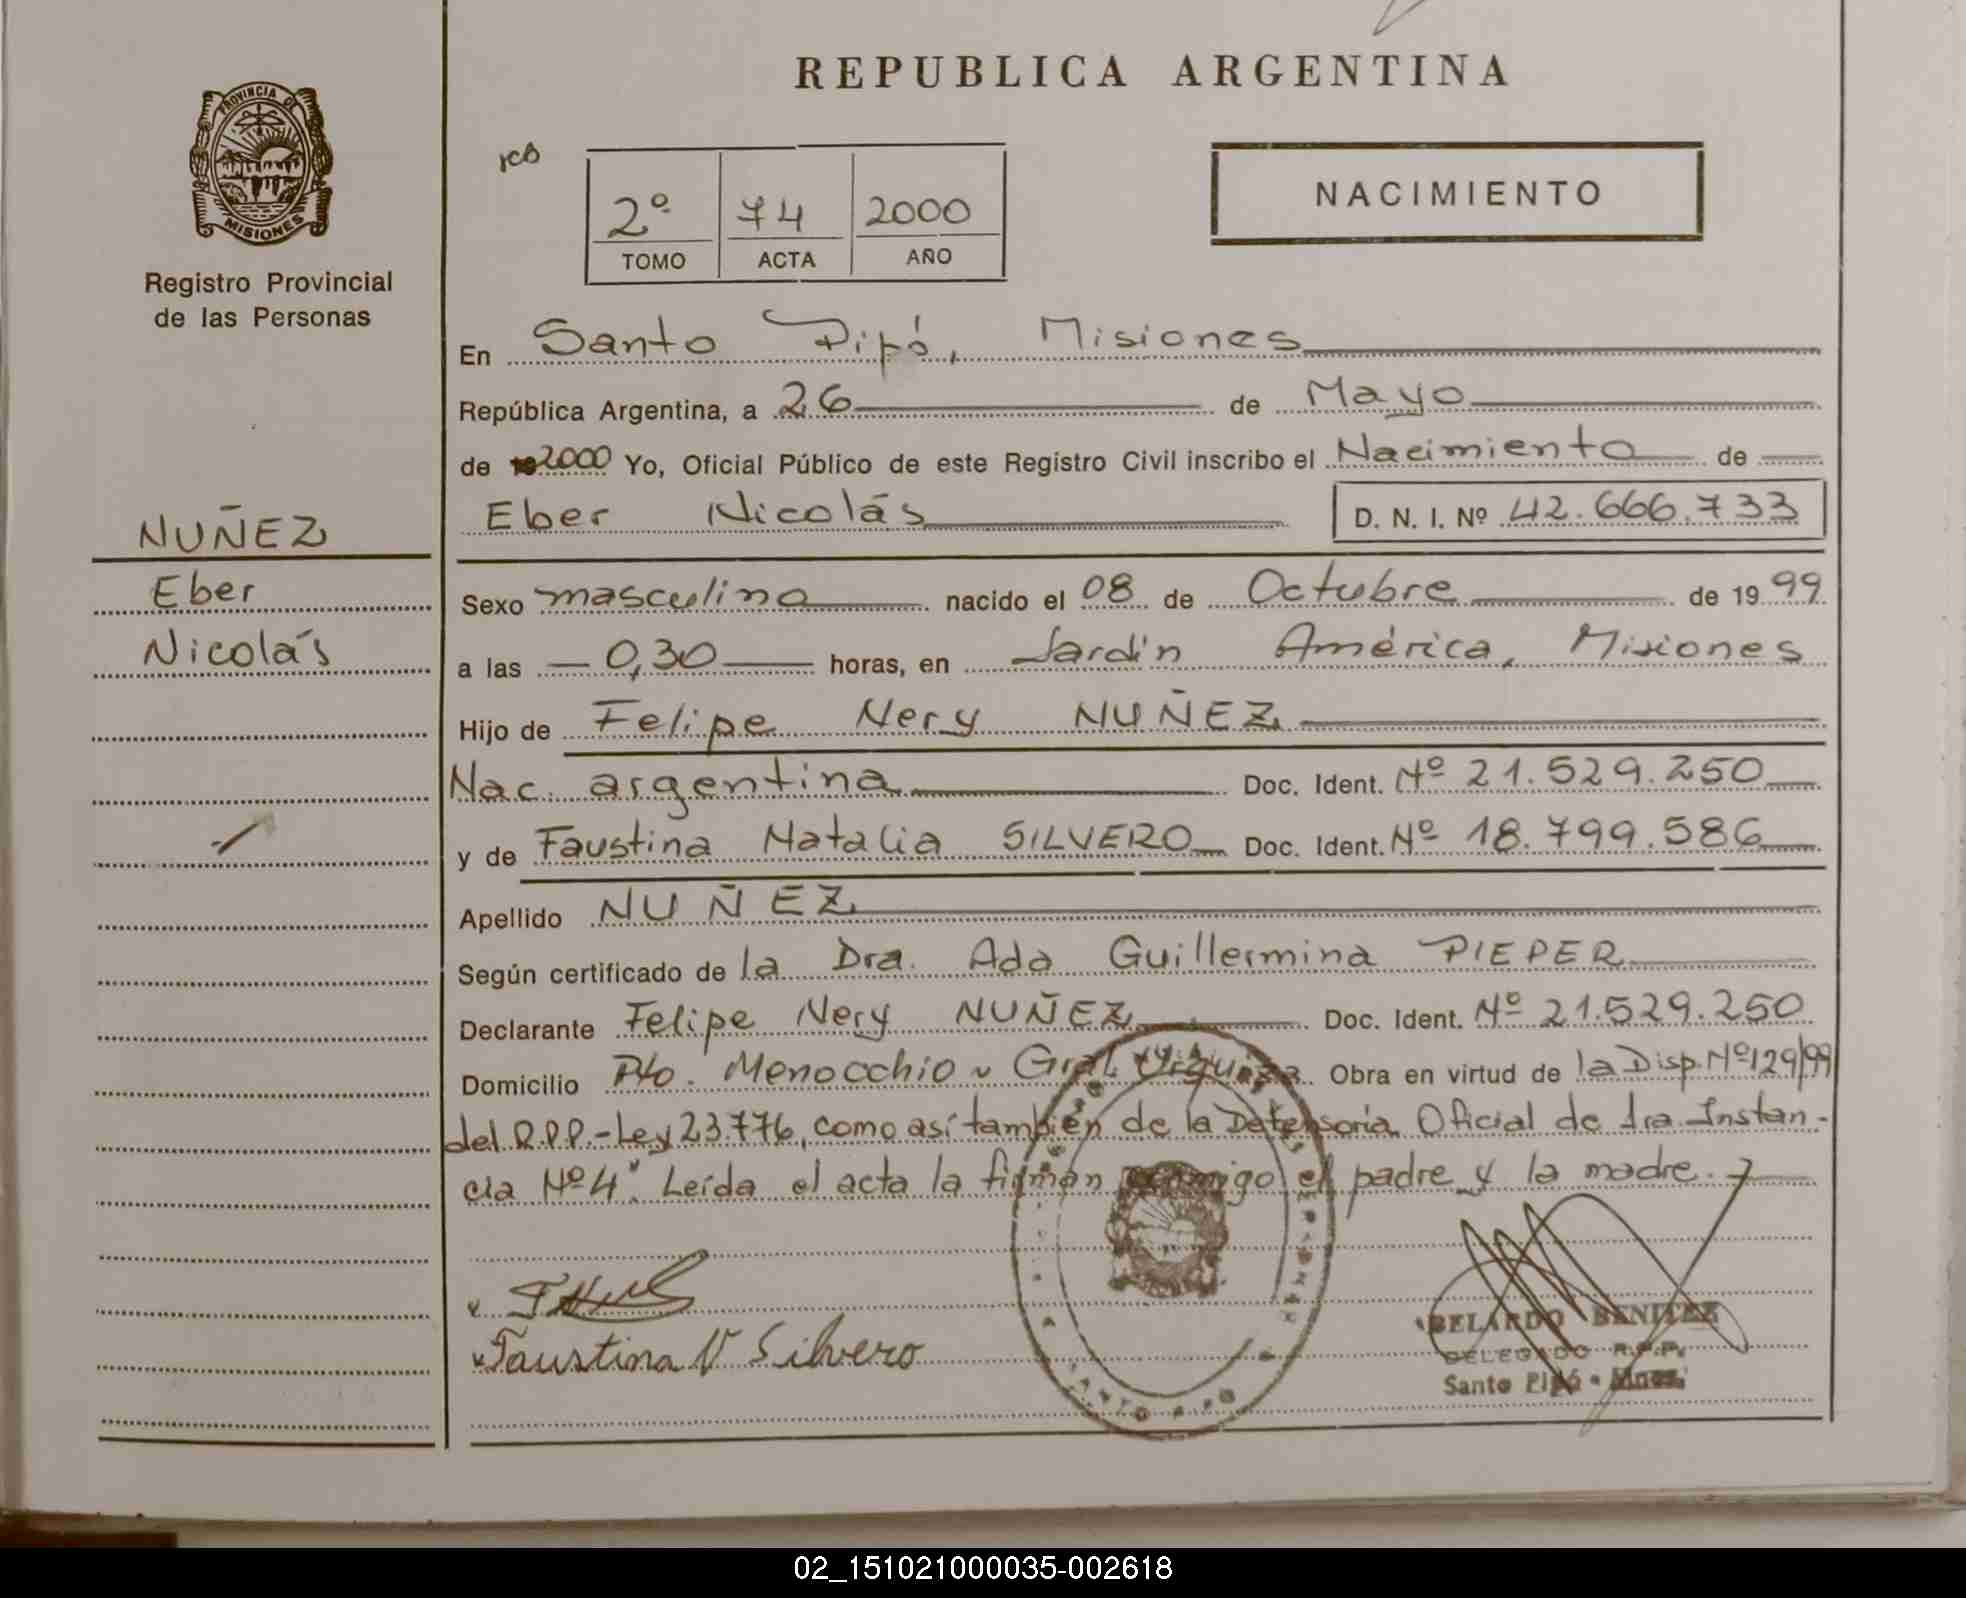 REPUBLICA ARGENTINA
PROVINCIA DE
MISIONES
Registro Provincial
de las Personas
2º 74 2000
TOMO ACTA AÑO
NACIMIENTO
En Santo Pipó, Misiones
República Argentina, a 26 de Mayo
de 2000 Yo, Oficial Público de este Registro Civil inscribo el Nacimiento de
Eber Nicolás D. N. I. Nº 42.666.733
NUÑEZ
Eber
Nicolás
Sexo masculino nacido el 08 de Octubre de 1999
a las 0,30 horas, en Jardín América, Misiones
Hijo de Felipe Nery NUÑEZ
Nac. argentina Doc. Ident. Nº 21.529.250
y de Faustina Natalia SILVERO Doc. Ident. Nº 18.799.586
Apellido NUÑEZ
Según certificado de la Dra. Ada Guillermina PIEPER
Declarante Felipe Nery NUÑEZ Doc. Ident. Nº 21.529.250
Domicilio Pto. Menocchio Gral. Urquiza Obra en virtud de la Disp. Nº 129/99
del R.P.P.-Ley 23.776, como así también de la Defensoría Oficial de 1ra. Instan-
cia Nº 4". Leída el acta la firman conmigo el padre y la madre.
Faustina N Silvero
BELARDO BENITEZ
DELEGADO R.P.P.
Santo Pipó - Mnes.
SANTO PIPO
02_151021000035-002618